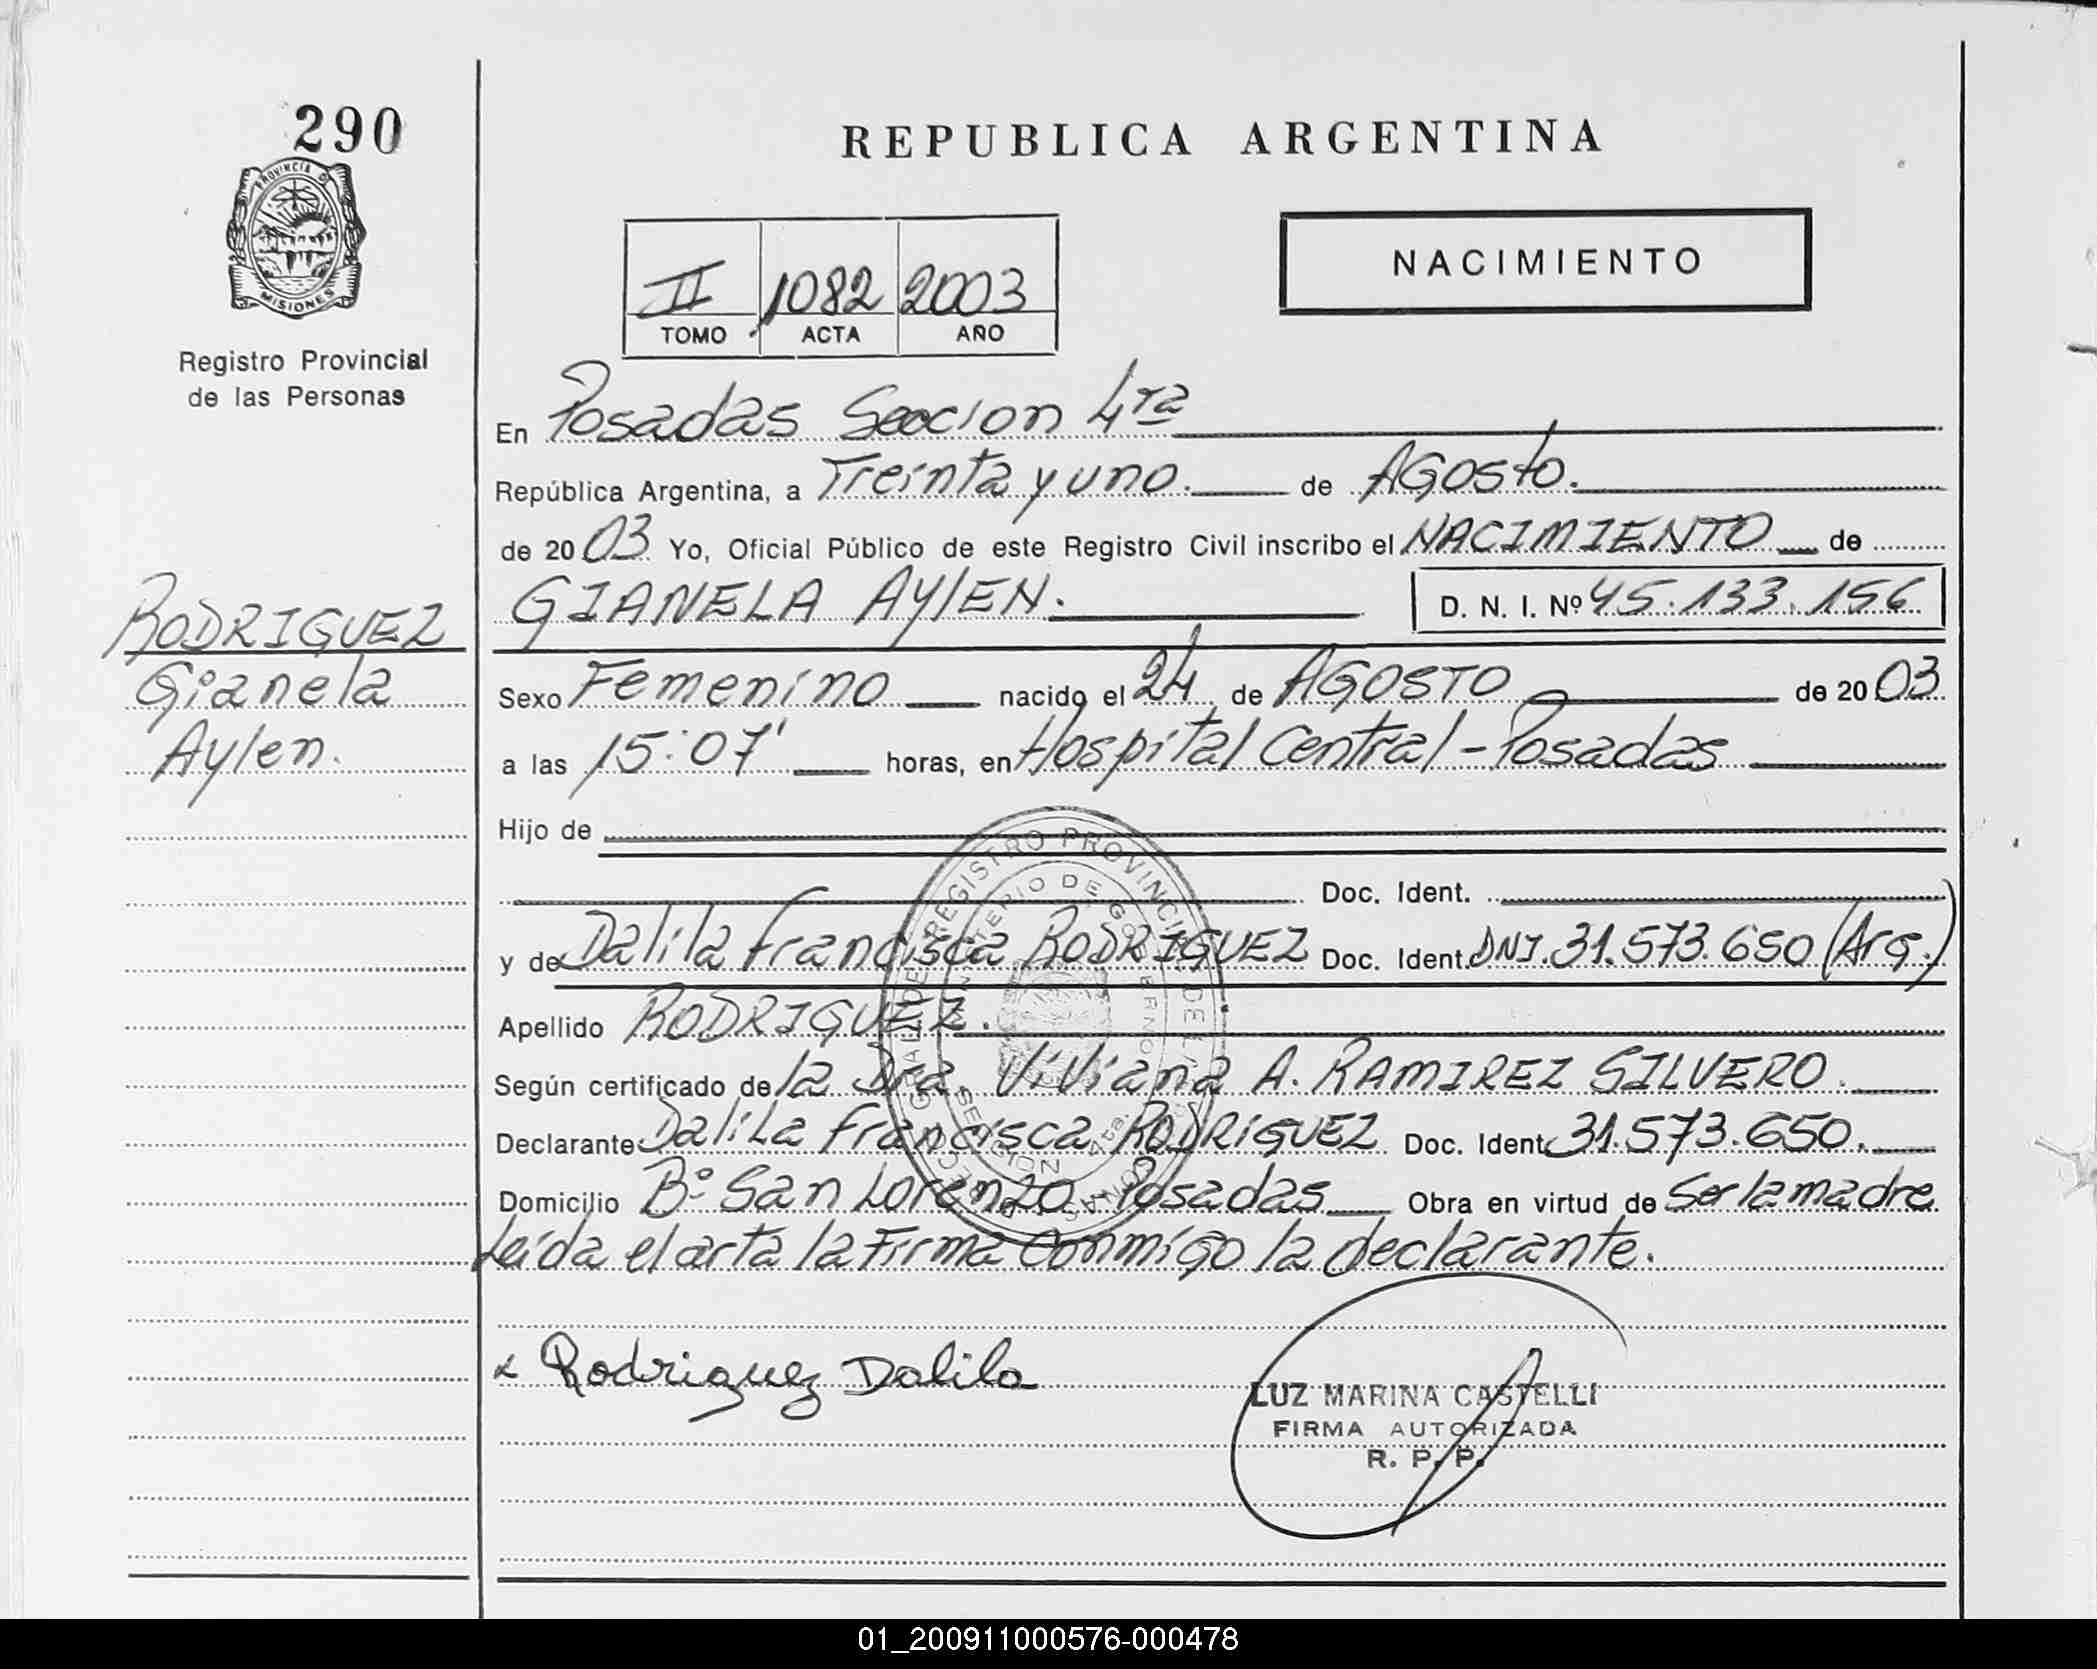 290
REPUBLICA ARGENTINA
PROVINCIA D
MISIONES
Registro Provincial
de las Personas
NACIMIENTO
II 1082 2003
TOMO ACTA AÑO
En Posadas Seccion 4ta
República Argentina, a Treinta y uno. de AGosto.
de 2003 Yo, Oficial Público de este Registro Civil inscribo el NACIMIENTO de
GIANELA AYlEN. D. N. I. Nº 45.133.156
RODRIGUEZ
Gianela
Aylen.
Sexo Femenino nacido el 24 de AGOSTO de 2003
a las 15:07' horas, en Hospital Central - Posadas
Hijo de
Doc. Ident.
y de Dalila Francisca RODRIGUEZ Doc. Ident. DNI. 31.573.650 (Arg.)
Apellido RODRIGUEZ.
Según certificado de la Dra. Viviana A. RAMIREZ SILVERO.
Declarante Dalila Francisca RODRIGUEZ Doc. Ident. 31.573.650.
Domicilio Bº San Lorenzo - Posadas Obra en virtud de Ser la madre
Leída el acta la Firma conmigo la declarante.
Rodriguez Dalila
LUZ MARINA CASTELLI
FIRMA AUTORIZADA
R. P. P.
01_200911000576-000478